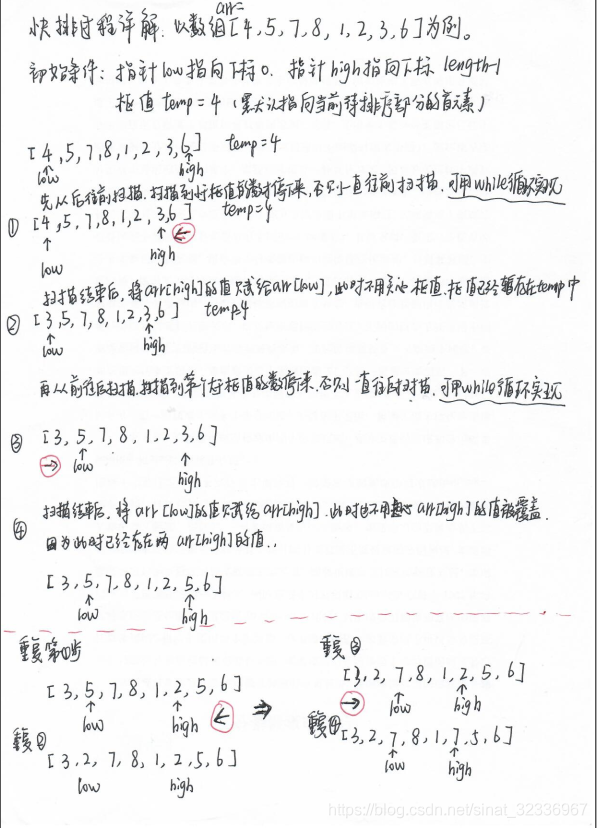 arr=
快排过程详解. 以数组[4,5,7,8,1,2,3,6]为例。
初始条件: 指针low指向下标0. 指针high指向下标 length-1
枢值 temp=4 (默认指向当前待排序部分的首元素)
[4,5,7,8,1,2,3,6] temp=4
low high
先从后往前扫描,扫描到小于枢值的数才停下来,否则一直往前扫描. 可用while循环实现
① [4,5,7,8,1,2,3,6] temp=4
low high
扫描结束后, 将arr[high]的值赋给arr[low], 此时不用关心枢值. 枢值已经暂存在temp中
② [3,5,7,8,1,2,3,6] temp4
low high
再从前往后扫描,扫描到第一个大于枢值的数停下来,否则一直往后扫描. 可用while循环实现
③ [3,5,7,8,1,2,3,6]
low high
扫描结束后, 将arr[low]的值赋给arr[high]. 此时也不用 arr[high]的值被覆盖.
④ 因为此时已经存在两 arr[high]的值..
[3,5,7,8,1,2,5,6]
low high
重复第①步
[3,5,7,8,1,2,5,6]
low high
重复②
[3,2,7,8,1,2,5,6]
low high
重复③
[3,2,7,8,1,2,5,6]
low high
重复④
[3,2,7,8,1,7,5,6]
low high
https://blog.csdn.net/sinat_32336967